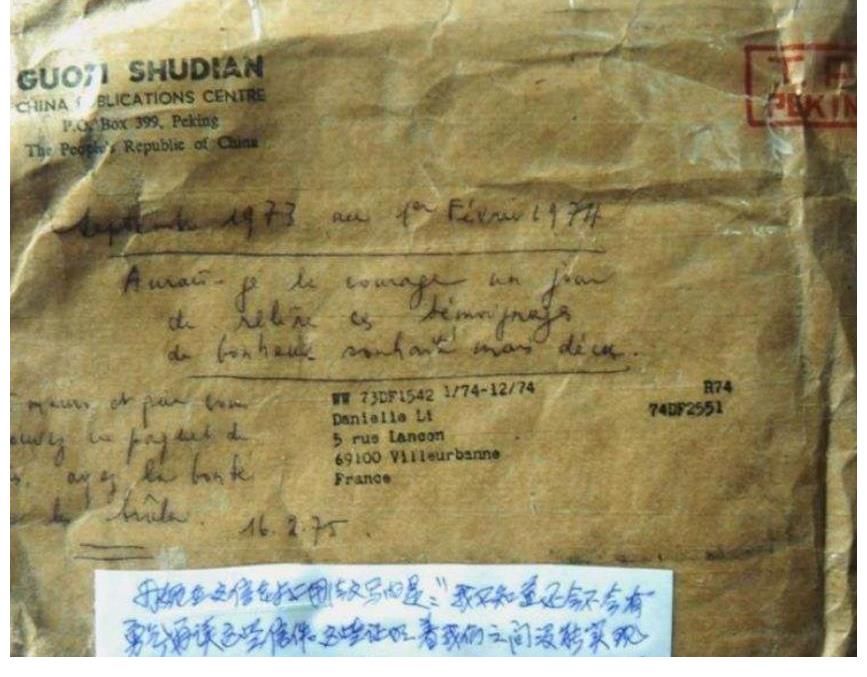 GUOZI SHUDIAN
CHINA PUBLICATIONS CENTRE
P.O. Box 399, Peking
The People's Republic of China
PEKIN
Septembre 1973 au 1er Février 1974
Aurai-je le courage un jour
de relire ces témoignages
de bonheur souhaité mais déçu.
WW 73DF1542 1/74-12/74
R74
Danielle Li
74DF2551
5 rue Lancon
69100 Villeurbanne
France
meurs et que vous
un paquet de
ayez la bonté
de brûler.
16.2.75
我在信封上用法文写的是："我不知道还会不会有
勇气再读这些信件。这些证明着我们之间没能实现